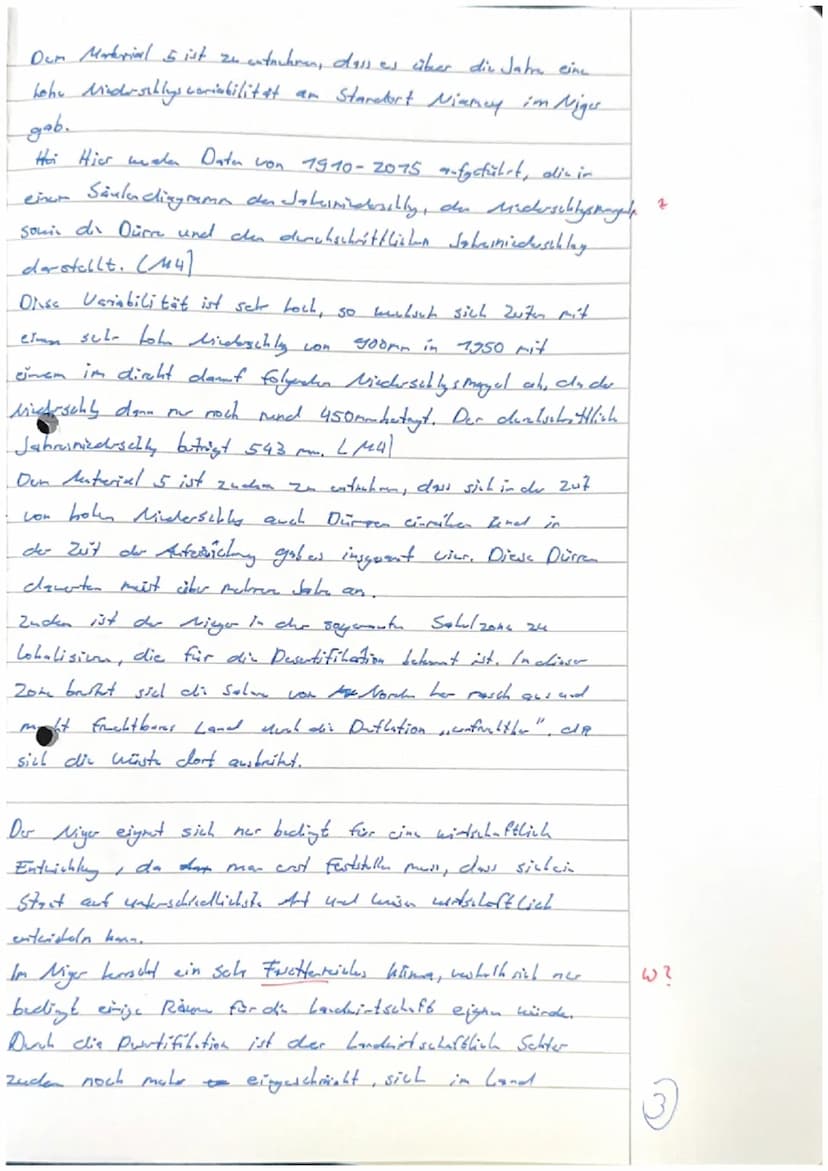 Dem Material 5 ist zu entnehmen, dass es über die Jahre eine
hohe Niederschlagsvariabilität am Standort Niamey im Niger
gab.
Hier werden Daten von 1910-2015 aufgeführt, die in
einem Säulendiagramm den Jahresniederschlag, den Niederschlagsmangel, z
sowie die Dürre und den durchschnittlichen Jahresniederschlag
darstellt. (M4)
Diese Variabilität ist sehr hoch, so wechseln sich Zeiten mit
einem sehr hohen Niederschlag von 900mm in 1950 mit
einem im direkt darauf folgenden Niederschlagsmangel ab, da der
Niederschlag dann nur noch rund 450mm beträgt. Der durchschnittlich
Jahresniederschlag beträgt 543 mm. (M4)
Dem Material 5 ist zudem zu entnehmen, dass sich in der Zeit
von hohen Niederschlag auch Dürren einreihen und in
der Zeit der Aufzeichnung gab es insgesamt vier. Diese Dürren
dauerten meist über mehrere Jahre an.
Zudem ist der Niger in der sogenannten Sahelzone zu
lokalisieren, die für die Desertifikation bekannt ist. In dieser
Zone breitet sich die Sahara von Norden her rasch aus und
macht fruchtbares Land durch die Deflation „ ", da
sich die Wüste dort ausbreitet.
Der Niger eignet sich nur bedingt für eine wirtschaftlich
Entwicklung, da man erst feststellen muss, dass sich ein
Staat auf unterschiedlichste Art und Weisen wirtschaftlich
entwickeln kann.
Im Niger herrscht ein sehr Klima, weshalb sich nur w?
bedingt einige Räume für die Landwirtschaft eignen würde.
Durch die Desertifikation ist der Landwirtschaftlich Sektor
zudem noch mehr eingeschränkt, sich im Land
3